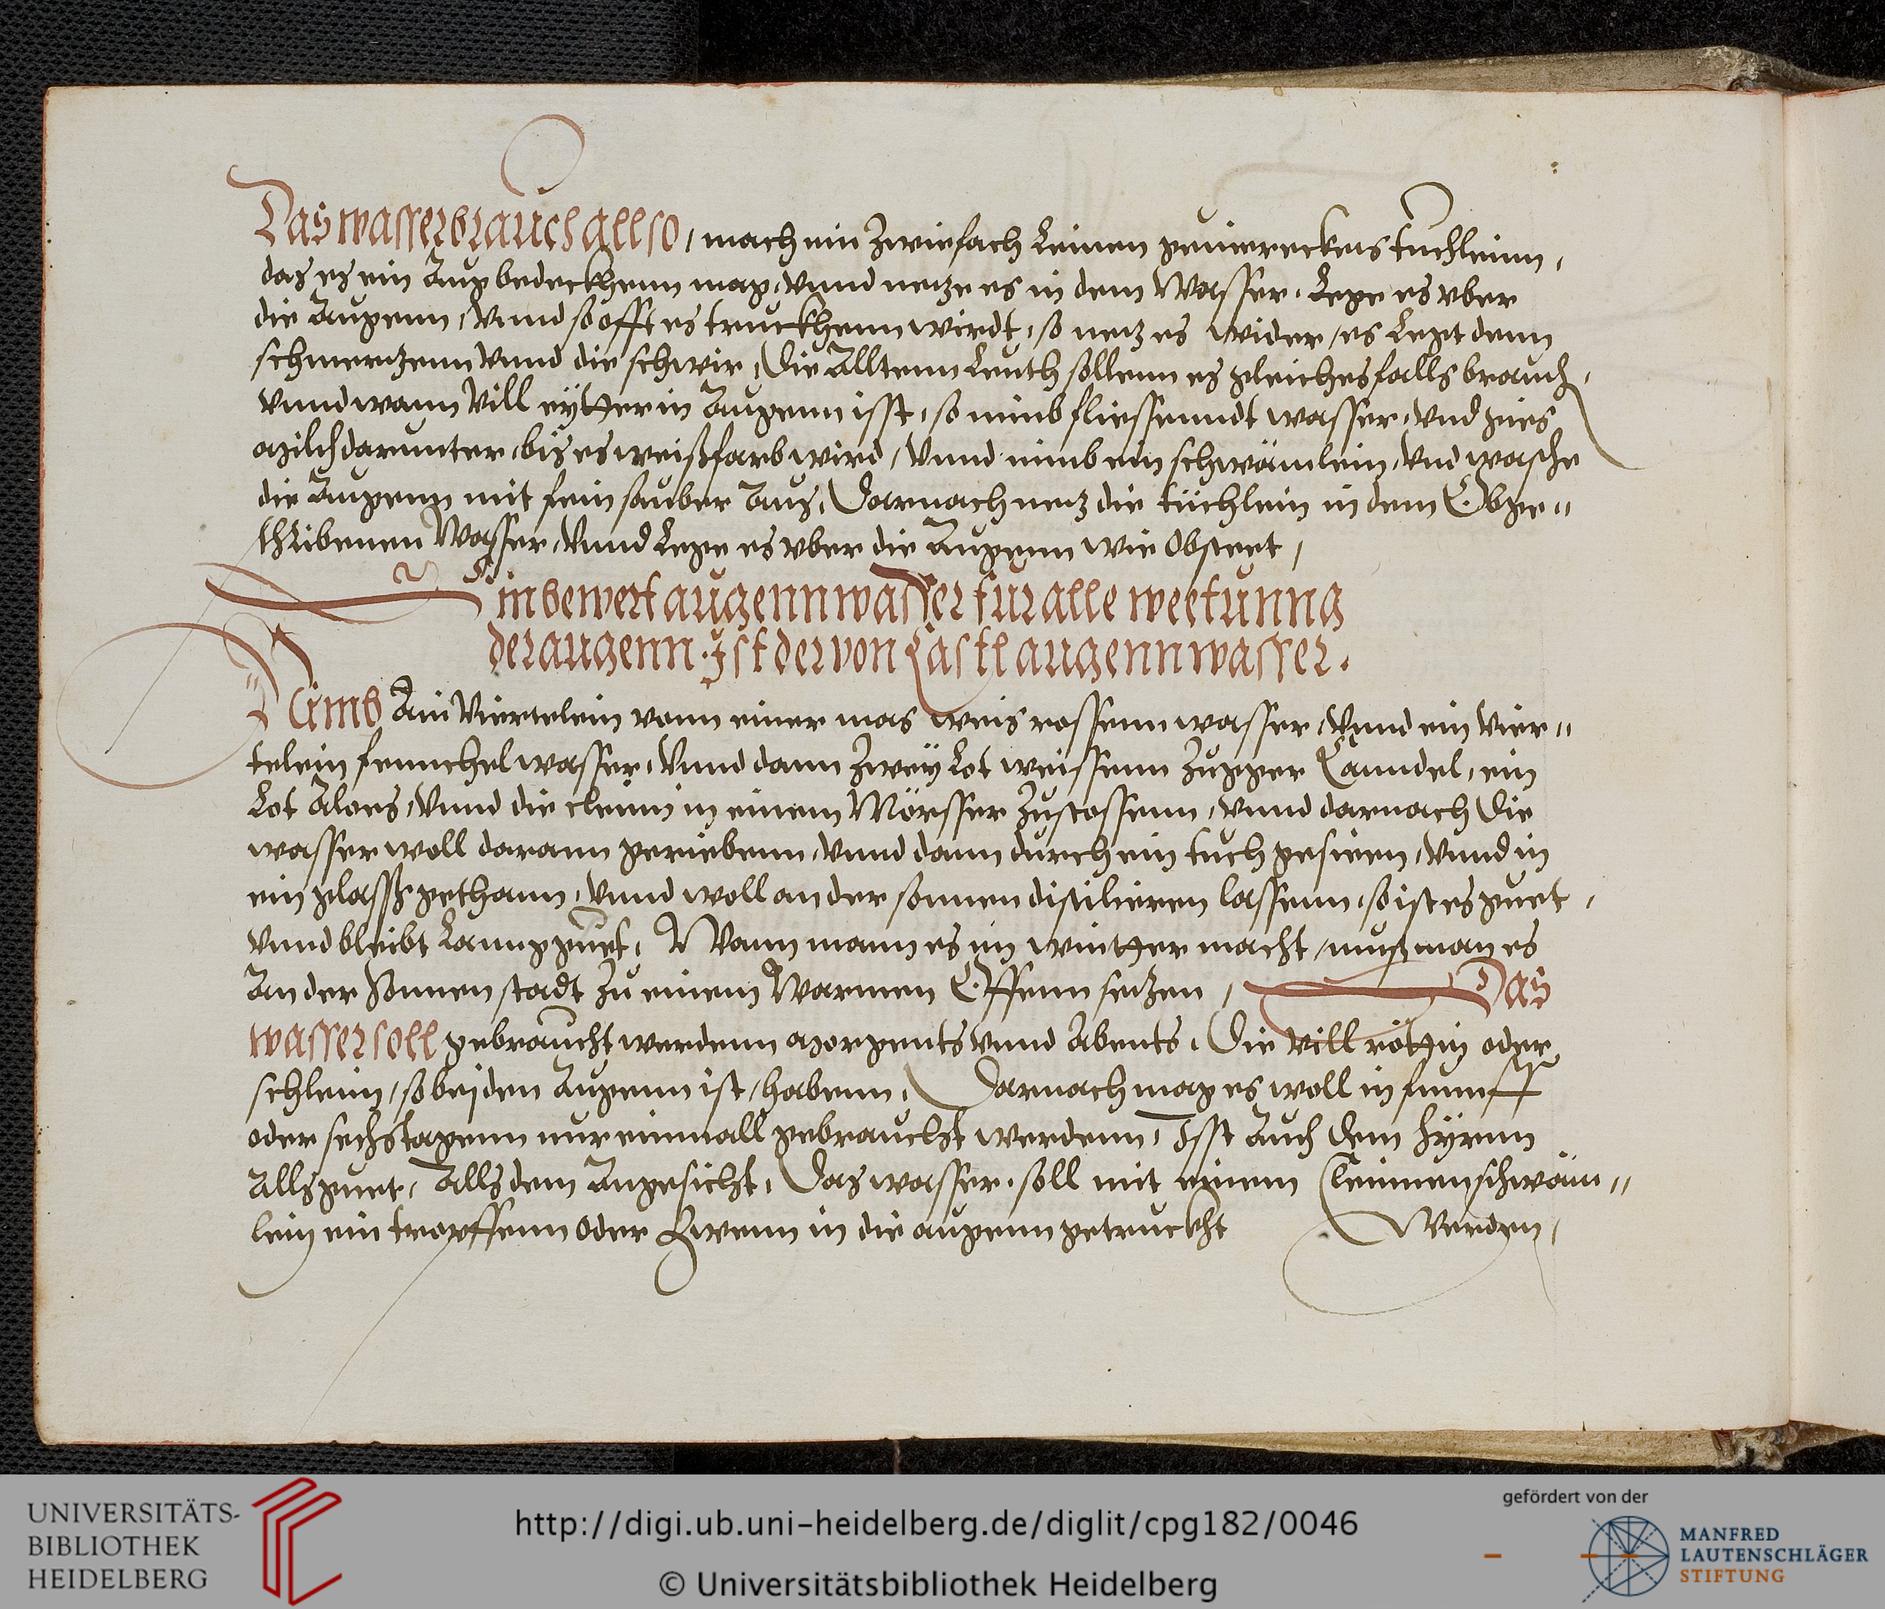 Das wasser brauch allso, mach ein Zwiefach Leinen geuiereckets tuchleinn,
das es ein Aug bedeckhenn mag, Vnnd netze es in dem Wasser, Lege es vber
die Augenn, Vnnd so offt es truckhenn wirdt, so netz es wider, es Legt denn
schmertzenn Vnnd die schwir, Die Alltenn Leuth sollenn es gleichesfalls brauch,
Vnnd wann Vill eytter in Augenn isst, so nimb fliessenndt wasser, Vnd gies
milch darunter, bis es weißfarb wird, Vnnd nimb ein schwämlein, Vnd wasche
die Augenn mit fein sauber Aus, Darnach netz die tüchlein in dem Obge=
schribenen Wasser, Vnnd Lege es vber die Augenn wie Obsteet,
Ein bewert augenn wasser fur alle weetunng
der augenn. Ist der von Castl augenn wasser.
Nimb Ain Viertelein vonn einer mas weis rossenn wasser, Vnnd ein Vier=
telein fennchel wasser, Vnnd dann Zwey Lot weissenn Zugger Canndel, ein
Lot Aloes, Vnnd die clein in einem Mörsser Zustossenn, Vnnd darnach Die
wasser woll darann geriebenn, Vnnd dann durch ein tuch gesieen, Vnnd in
ein glasß gethann, Vnnd woll an der sonnen distilieren lassenn, so ist es guet,
Vnnd bleibt Lanng guet, Wann mann es im wintter macht, mus man es
An der Sonnen stadt Zu einem Warmen Offenn setzen, Das
wasser soll gebraucht werdenn morgents Vnnd Abents, Die Vill röttin oder
schleim, so bei den Augenn ist, habenn, Darnach mag es woll in funnff
oder sechs tagenn nur einmall gebraucht werdenn, Isst Auch dem hyrnn
Alls guet, Alls dem Angesicht, Das wasser soll mit einem Cleinnen schwäm=
lein ein tropffenn Oder Zwenn in die augenn getruckht Werden,
UNIVERSITÄTS-
BIBLIOTHEK
HEIDELBERG
http://digi.ub.uni-heidelberg.de/diglit/cpg182/0046
© Universitätsbibliothek Heidelberg
gefördert von der
MANFRED
LAUTENSCHLÄGER
STIFTUNG